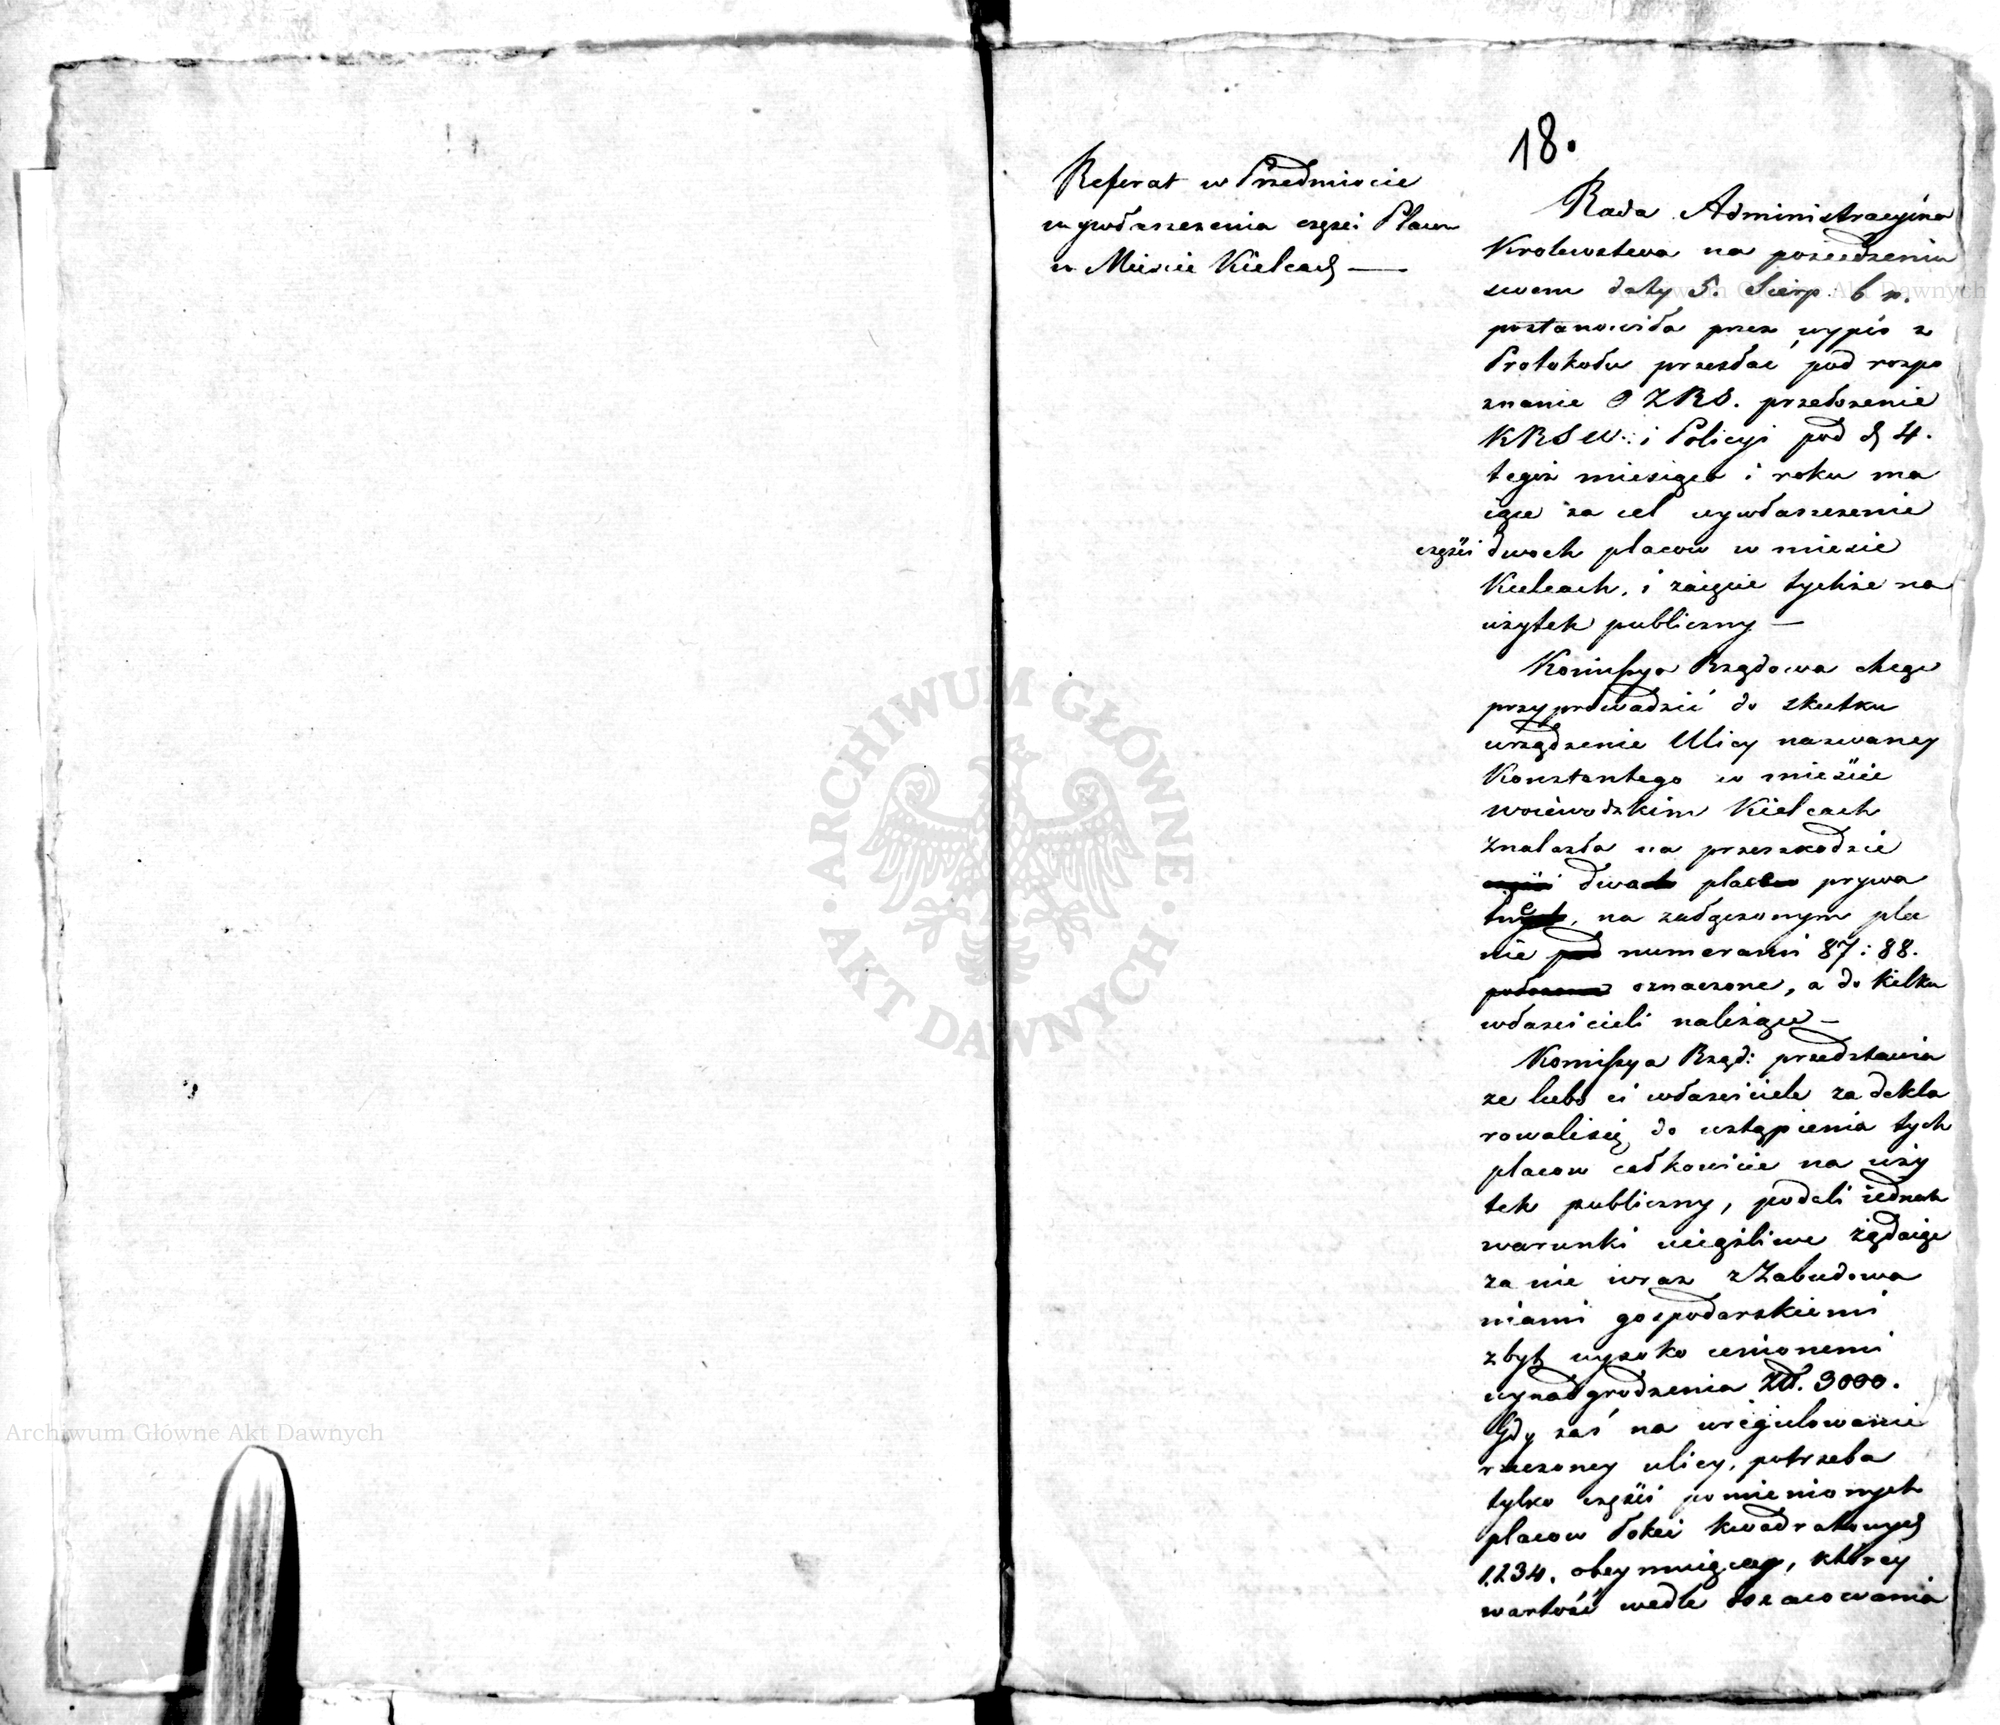 18.
Referat w Przedmiocie
wywłaszczenia części Placu
w Mieście Kielcach —
Rada Administracyina
Krolewstwa na posiedzeniu
swem daty 5. Sierp: b r.
postanowiła przez wypis z
Protokołu przesłać pod rozpo
znanie OZRS. przełożenie
KRSW: i Policyi pod d 4.
tegoż miesiąca i roku ma
iące za cel wywłaszczenie
części dwoch placow w mieście
Kielcach, i zaięcie tychże na
użytek publiczny —
Komissya Rządowa chcąc
przyprowadzić do skutku
urządzenie Ulicy nazwaney
Konstantego w mieście
woiewodzkim Kielcach
znalazła na przeszkodzie
części dwa place prywa
tne, na załączonym pla
nie pod numerami 87: 88.
położone oznaczone, a do kilku
właścicieli należące —
Komissya Rząd: przedstawia
że lubo ci właściciele zadekla
rowalisię do ustąpienia tych
placow całkowicie na uży
tek publiczny, podali iednak
warunki uciążliwe żądaiąc
za nie wraz z Zabudowa
niami gospodarskiemi
zbyt wysoko cenionemi
wynadgrodzenia Złł. 3000.
Gdy zaś na uregulowanie
rzeczoney ulicy, potrzeba
tylko części pomienionych
placow łokci kwadratowych
1.234. obeymuiącey, ktorey
wartość wedle oszacowania
Archiwum Główne Akt Dawnych
ARCHIWUM GŁÓWNE
AKT DAWNYCH
Archiwum Główne Akt Dawnych